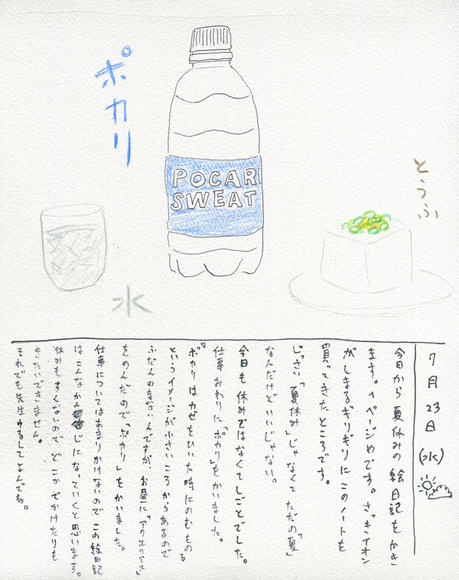 ポカリ
POCARI
SWEAT
とうふ
水
7月23日(水)
今日から夏休みの絵日記をかき
ます。1ページめです。さっきイオン
がしまるギリギリにこのノートを
買ってきたところです。
じっさい「夏休み」じゃなくてただの「夏」
なんだけどいいじゃない。
今日も休みではなくてしごとでした。
仕事おわりに「ポカリ」をかいました。
ポカリはカゼをひいた時にのむもの
というイメージが小さいころからあるので
ふだんのまないんですが、お昼に「アクエリアス」
をのんだので「ポカリ」をかいました。
仕事についてはあまりかけないのでこの絵日記
はこんなかんじになっていくと思います。
休みもすくないのでどこかでかけたりも
きたいできません。
それでも先生ゆるしてよんでね。